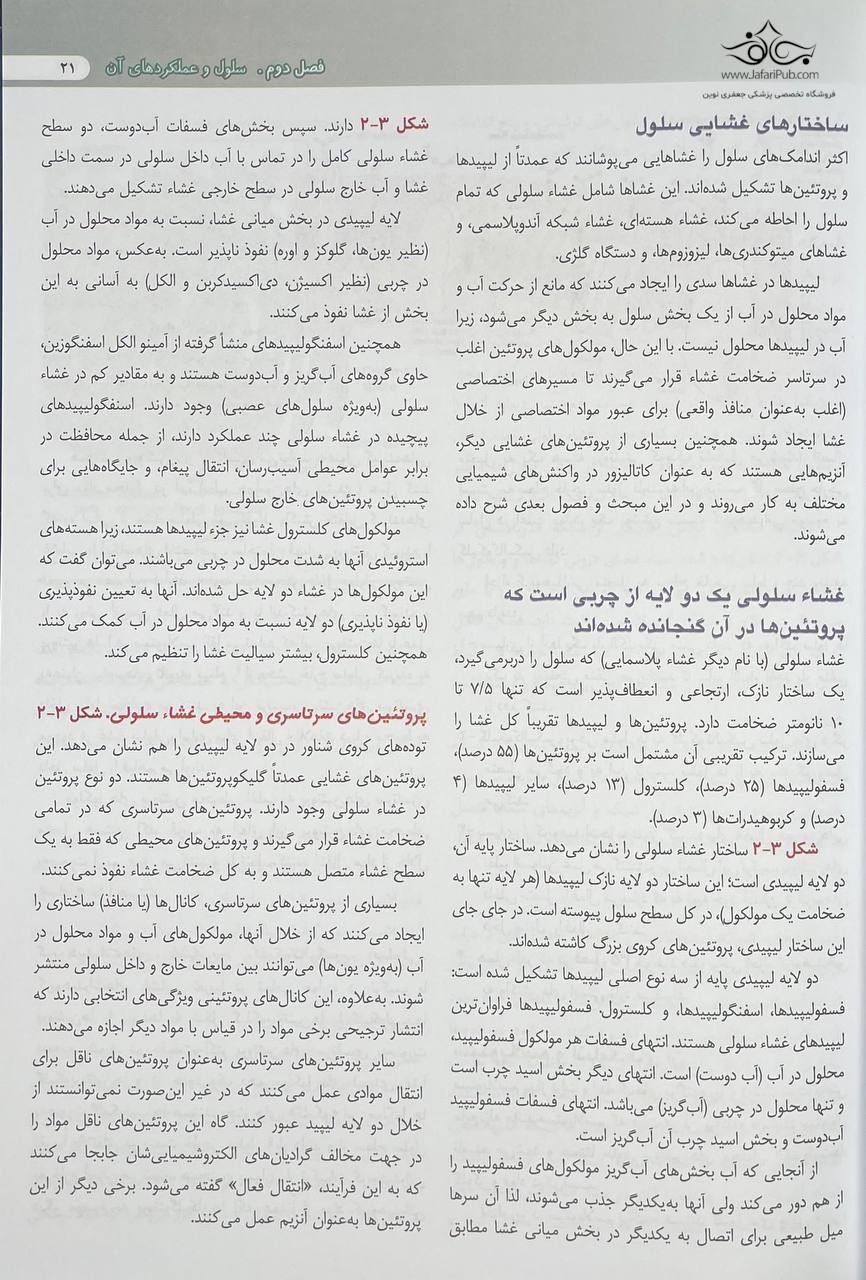 بهاف
www.JafariPub.com
فروشگاه تخصصی پزشکی جعفری نوین
فصل دوم . سلول و عملکردهای آن
۲۱
ساختارهای غشایی سلول
اکثر اندامک‌های سلول را غشاهایی می‌پوشانند که عمدتاً از لیپیدها
و پروتئین‌ها تشکیل شده‌اند. این غشاها شامل غشاء سلولی که تمام
سلول را احاطه می‌کند، غشاء هسته‌ای، غشاء شبکه آندوپلاسمی، و
غشاهای میتوکندری‌ها، لیزوزوم‌ها، و دستگاه گلژی.
لیپیدها در غشاها سدی را ایجاد می‌کنند که مانع از حرکت آب و
مواد محلول در آب از یک بخش سلول به بخش دیگر می‌شود، زیرا
آب در لیپیدها محلول نیست. با این حال، مولکول‌های پروتئین اغلب
در سرتاسر ضخامت غشاء قرار می‌گیرند تا مسیرهای اختصاصی
(اغلب به‌عنوان منافذ واقعی) برای عبور مواد اختصاصی از خلال
غشا ایجاد شوند. همچنین بسیاری از پروتئین‌های غشایی دیگر،
آنزیم‌هایی هستند که به عنوان کاتالیزور در واکنش‌های شیمیایی
مختلف به کار می‌روند و در این مبحث و فصول بعدی شرح داده
می‌شوند.
غشاء سلولی یک دو لایه از چربی است که
پروتئین‌ها در آن گنجانده شده‌اند
غشاء سلولی (با نام دیگر غشاء پلاسمایی) که سلول را دربرمی‌گیرد،
یک ساختار نازک، ارتجاعی و انعطاف‌پذیر است که تنها ۷/۵ تا
۱۰ نانومتر ضخامت دارد. پروتئین‌ها و لیپیدها تقریباً کل غشا را
می‌سازند. ترکیب تقریبی آن مشتمل است بر پروتئین‌ها (۵۵ درصد)،
فسفولیپیدها (۲۵ درصد)، کلسترول (۱۳ درصد)، سایر لیپیدها (۴
درصد) و کربوهیدرات‌ها (۳ درصد).
شکل ۳-۲ ساختار غشاء سلولی را نشان می‌دهد. ساختار پایه آن،
دو لایه لیپیدی است؛ این ساختار دو لایه نازک لیپیدها (هر لایه تنها به
ضخامت یک مولکول)، در کل سطح سلول پیوسته است. در جای جای
این ساختار لیپیدی، پروتئین‌های کروی بزرگ کاشته شده‌اند.
دو لایه لیپیدی پایه از سه نوع اصلی لیپیدها تشکیل شده است:
فسفولیپیدها، اسفنگولیپیدها، و کلسترول. فسفولیپیدها فراوان‌ترین
لیپیدهای غشاء سلولی هستند. انتهای فسفات هر مولکول فسفولیپید،
محلول در آب (آب دوست) است. انتهای دیگر بخش اسید چرب است
و تنها محلول در چربی (آب‌گریز) می‌باشد. انتهای فسفات فسفولیپید
آب‌دوست و بخش اسید چرب آن آب‌گریز است.
از آنجایی که آب بخش‌های آب‌گریز مولکول‌های فسفولیپید را
از هم دور می‌کند ولی آنها به‌یکدیگر جذب می‌شوند، لذا آن سرها
میل طبیعی برای اتصال به یکدیگر در بخش میانی غشا مطابق
شکل ۳-۲ دارند. سپس بخش‌های فسفات آب‌دوست، دو سطح
غشاء سلولی کامل را در تماس با آب داخل سلولی در سمت داخلی
غشا و آب خارج سلولی در سطح خارجی غشاء تشکیل می‌دهند.
لایه لیپیدی در بخش میانی غشا، نسبت به مواد محلول در آب
(نظیر یون‌ها، گلوکز و اوره) نفوذ ناپذیر است. به‌عکس، مواد محلول
در چربی (نظیر اکسیژن، دی‌اکسیدکربن و الکل) به آسانی به این
بخش از غشا نفوذ می‌کنند.
همچنین اسفنگولیپیدهای منشأ گرفته از آمینو الکل اسفنگوزین،
حاوی گروه‌های آب‌گریز و آب‌دوست هستند و به مقادیر کم در غشاء
سلولی (به‌ویژه سلول‌های عصبی) وجود دارند. اسنفگولیپیدهای
پیچیده در غشاء سلولی چند عملکرد دارند، از جمله محافظت در
برابر عوامل محیطی آسیب‌رسان، انتقال پیغام، و جایگاه‌هایی برای
چسبیدن پروتئین‌های خارج سلولی.
مولکول‌های کلسترول غشا نیز جزء لیپیدها هستند، زیرا هسته‌های
استروئیدی آنها به شدت محلول در چربی می‌باشند. می‌توان گفت که
این مولکول‌ها در غشاء دو لایه حل شده‌اند. آنها به تعیین نفوذپذیری
(یا نفوذ ناپذیری) دو لایه نسبت به مواد محلول در آب کمک می‌کنند.
همچنین کلسترول، بیشتر سیالیت غشا را تنظیم می‌کند.
پروتئین‌های سرتاسری و محیطی غشاء سلولی. شکل ۳-۲
توده‌های کروی شناور در دو لایه لیپیدی را هم نشان می‌دهد. این
پروتئین‌های غشایی عمدتاً گلیکوپروتئین‌ها هستند. دو نوع پروتئین
در غشاء سلولی وجود دارند. پروتئین‌های سرتاسری که در تمامی
ضخامت غشاء قرار می‌گیرند و پروتئین‌های محیطی که فقط به یک
سطح غشاء متصل هستند و به کل ضخامت غشاء نفوذ نمی‌کنند.
بسیاری از پروتئین‌های سرتاسری، کانال‌ها (یا منافذ) ساختاری را
ایجاد می‌کنند که از خلال آنها، مولکول‌های آب و مواد محلول در
آب (به‌ویژه یون‌ها) می‌توانند بین مایعات خارج و داخل سلولی منتشر
شوند. به‌علاوه، این کانال‌های پروتئینی ویژگی‌های انتخابی دارند که
انتشار ترجیحی برخی مواد را در قیاس با مواد دیگر اجازه می‌دهند.
سایر پروتئین‌های سرتاسری به‌عنوان پروتئین‌های ناقل برای
انتقال موادی عمل می‌کنند که در غیر این‌صورت نمی‌توانستند از
خلال دو لایه لیپید عبور کنند. گاه این پروتئین‌های ناقل مواد را
در جهت مخالف گرادیان‌های الکتروشیمیایی‌شان جابجا می‌کنند
که به این فرآیند، «انتقال فعال» گفته می‌شود. برخی دیگر از این
پروتئین‌ها به‌عنوان آنزیم عمل می‌کنند.